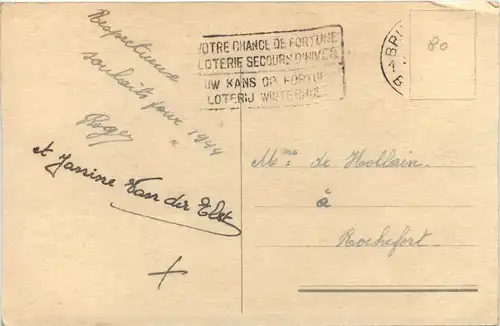 Respectueux
souhaits pour 1944
Roger
et Janine Van der Elst
VOTRE CHANCE DE FORTUNE
LOTERIE SECOURS D'HIVER
UW KANS OP FORTUIN
LOTERIJ WINTERHULP
80
Mr de Hollain.
à
Rochefort.